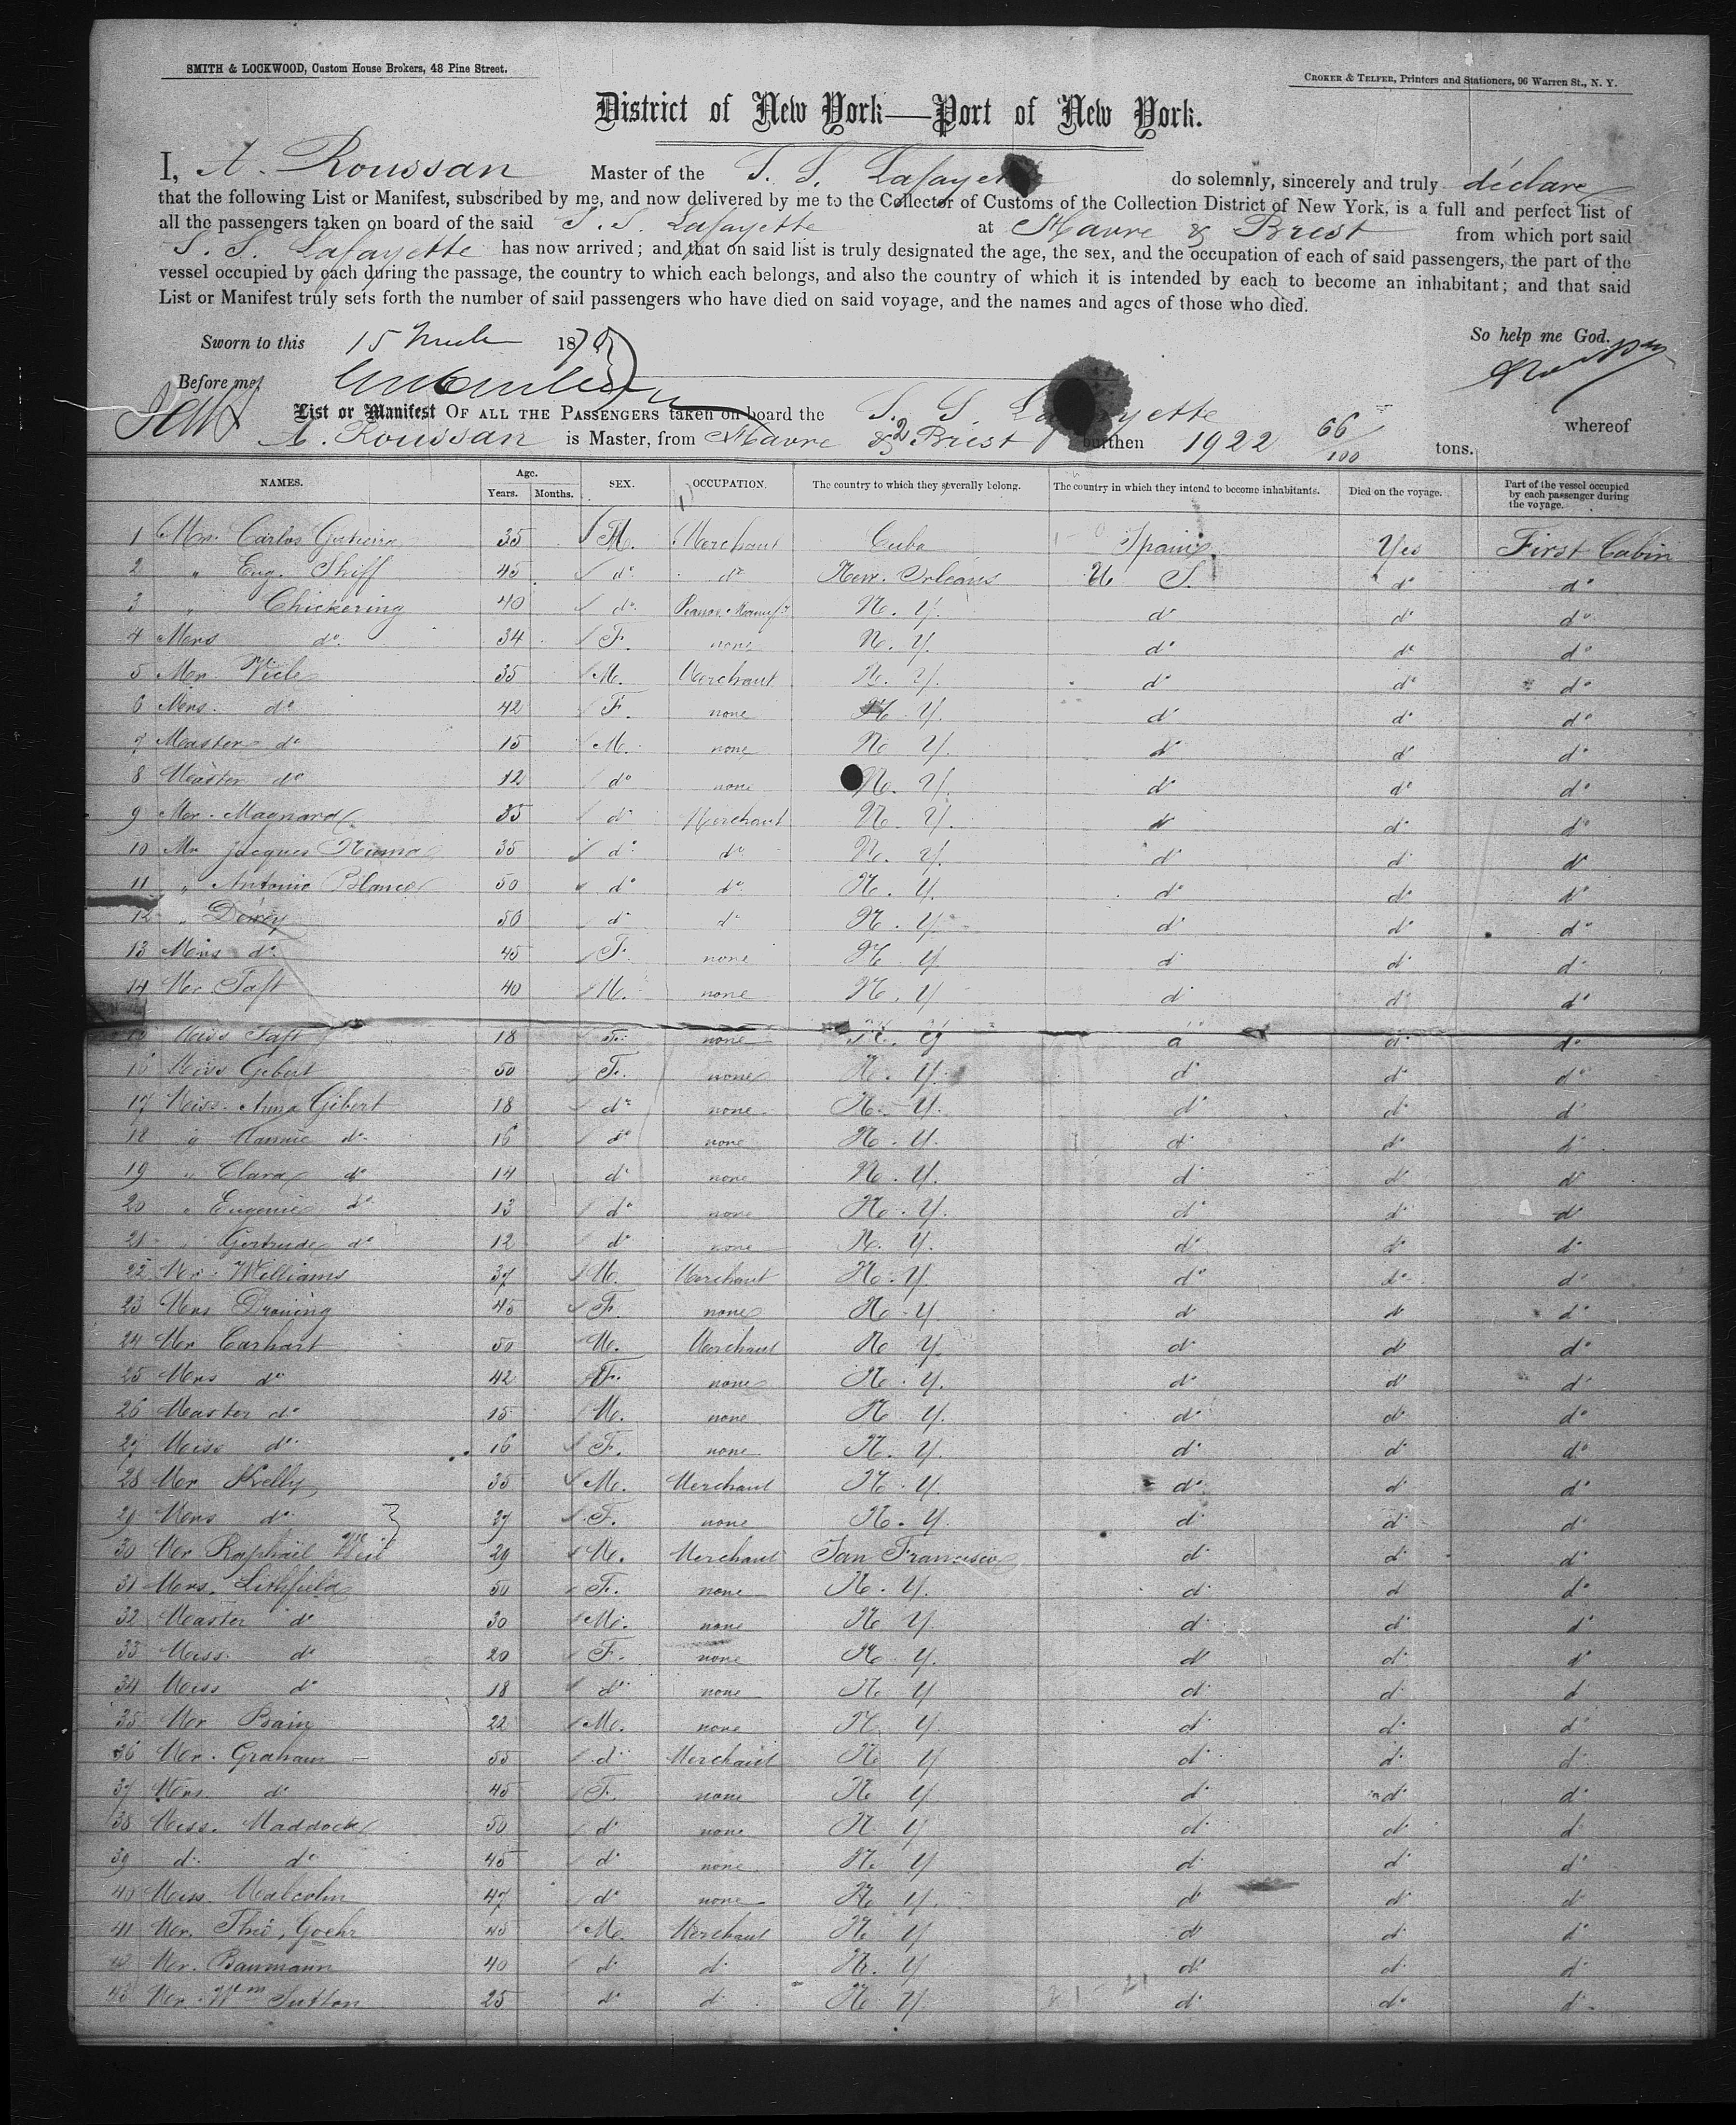 SMITH & LOCKWOOD, Custom House Brokers, 48 Pine Street.
CROKER & TELFER, Printers and Stationers, 96 Warren St., N. Y.
District of New York—Port of New York.
I, A. Roussan Master of the S. S. Lafayette do solemnly, sincerely and truly déclare
that the following List or Manifest, subscribed by me, and now delivered by me to the Collector of Customs of the Collection District of New York, is a full and perfect list of
all the passengers taken on board of the said S. S. Lafayette at Havre & Brest from which port said
S. S. Lafayette has now arrived; and that on said list is truly designated the age, the sex, and the occupation of each of said passengers, the part of the
vessel occupied by each during the passage, the country to which each belongs, and also the country of which it is intended by each to become an inhabitant; and that said
List or Manifest truly sets forth the number of said passengers who have died on said voyage, and the names and ages of those who died.
Sworn to this 15 1870 So help me God.
Before me,
List or Manifest OF ALL THE PASSENGERS taken on board the S. S. Lafayette whereof
A. Roussan is Master, from Havre & Brest burthen 1922 66/100 tons.
NAMES. Age. Years. Months. SEX. OCCUPATION. The country to which they severally belong. The country in which they intend to become inhabitants. Died on the voyage. Part of the vessel occupied by each passenger during the voyage.
1 Mr. Carlos 35 M. Merchant Cuba Spain Yes First Cabin
2 " Eug. Shiff 45 do do New. Orléans U S. do do
3 " Chickering 40 do N. Y. do do do
4 Mrs do 34 F. none N. Y. do do do
5 Mr. Viele 35 M. Merchant N. Y. do do do
6 Mrs. do 42 F. none N. Y. do do do
7 Master do 15 M. none N. Y. do do do
8 Master do 12 do none N. Y. do do do
9 Mr. Magnard 35 do Merchant N. Y. do do do
10 Mr Jacques 35 do do N. Y. do do do
11 " Antonio Blanco 50 do do N. Y. do do do
12 " Dewey 50 do do N. Y. do do do
13 Mrs do 45 F. none N. Y. do do do
14 Mr Taft 40 M. none N. Y do do do
15 Miss Taft 18 F. none N. Y do do do
16 Miss Gebert 50 F. none N. Y. do do do
17 Miss. Anna Gibert 18 do none N. Y. do do do
18 " Fannie do 16 do none N. Y. do do do
19 " Clara do 14 do none N. Y. do do do
20 " Eugenie do 13 do none N. Y. do do do
21 " Gertrude do 12 do none N. Y. do do do
22 Mr. Williams 37 M. Merchant N. Y. do do do
23 Mrs 45 F. none N. Y. do do do
24 Mr Carhart 50 M. Merchant N. Y. do do do
25 Mrs do 42 F. none N. Y. do do do
26 Master do 15 M. none N. Y. do do do
27 Miss do 16 F. none N. Y. do do do
28 Mr Kelly 35 M. Merchant N. Y. do do do
29 Mrs do 37 F. none N. Y. do do do
30 Mr Raphaël Weil 29 M. Merchant San Francisco do do do
31 Mrs. Lithfield 50 F. none N. Y. do do do
32 Master do 30 M. none N. Y. do do do
33 Miss. do 20 F. none N. Y. do do do
34 Miss do 18 do none N. Y do do do
35 Mr Bain 22 M. none N. Y. do do do
36 Mr. Graham 55 do Merchant N. Y do do do
37 Mrs. do 45 F. none N. Y. do do do
38 Miss. Maddock 50 do none N. Y do do do
39 do do 45 do none N. Y do do do
40 Miss. Malcolm 47 do none N. Y. do do do
41 Mr. Théo. Goehr 45 M. Merchant N. Y do do do
42 Mr. Baumann 40 do do N. Y do do do
43 Mr. Wm Sutton 25 do do N. Y. do do do